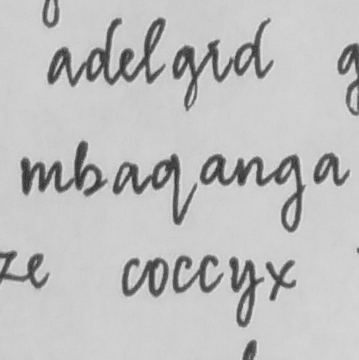 adelgid
mbaqanga
coccyx